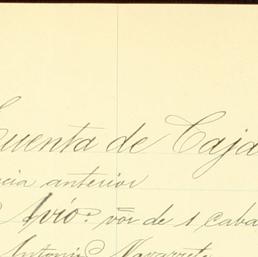 Cuenta de Caja
cia anterior
Avío. vor de 1 caba
Antonio Navarrete